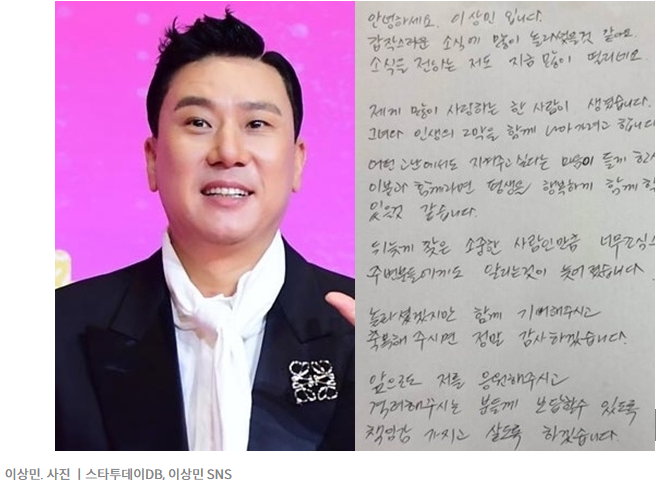 안녕하세요. 이상민 입니다.
갑작스러운 소식에 많이 놀라셨을것 같아요.
소식을 전하는 저도 지금 많이 떨리네요.
제게 많이 사랑하는 한 사람이 생겼습니다.
그녀와 인생의 2막을 함께 나아가려고 합니다
어떤 고난에서도 지켜주고 싶다는 마음이 들게
이분과 함께라면 평생을 행복하게 함께
있을것 같습니다.
뒤늦게 찾은 소중한 사람인만큼 너무
주변분들에게도 알리는것이 늦어졌습니다
놀라셨겠지만 함께 기뻐해주시고
축복해 주시면 정말 감사하겠습니다.
앞으로도 저를 응원해주시고
격려해주시는 분들께 보답할수 있도록
책임감 가지고 살도록 하겠습니다.
이상민. 사진 ㅣ스타투데이DB, 이상민 SNS